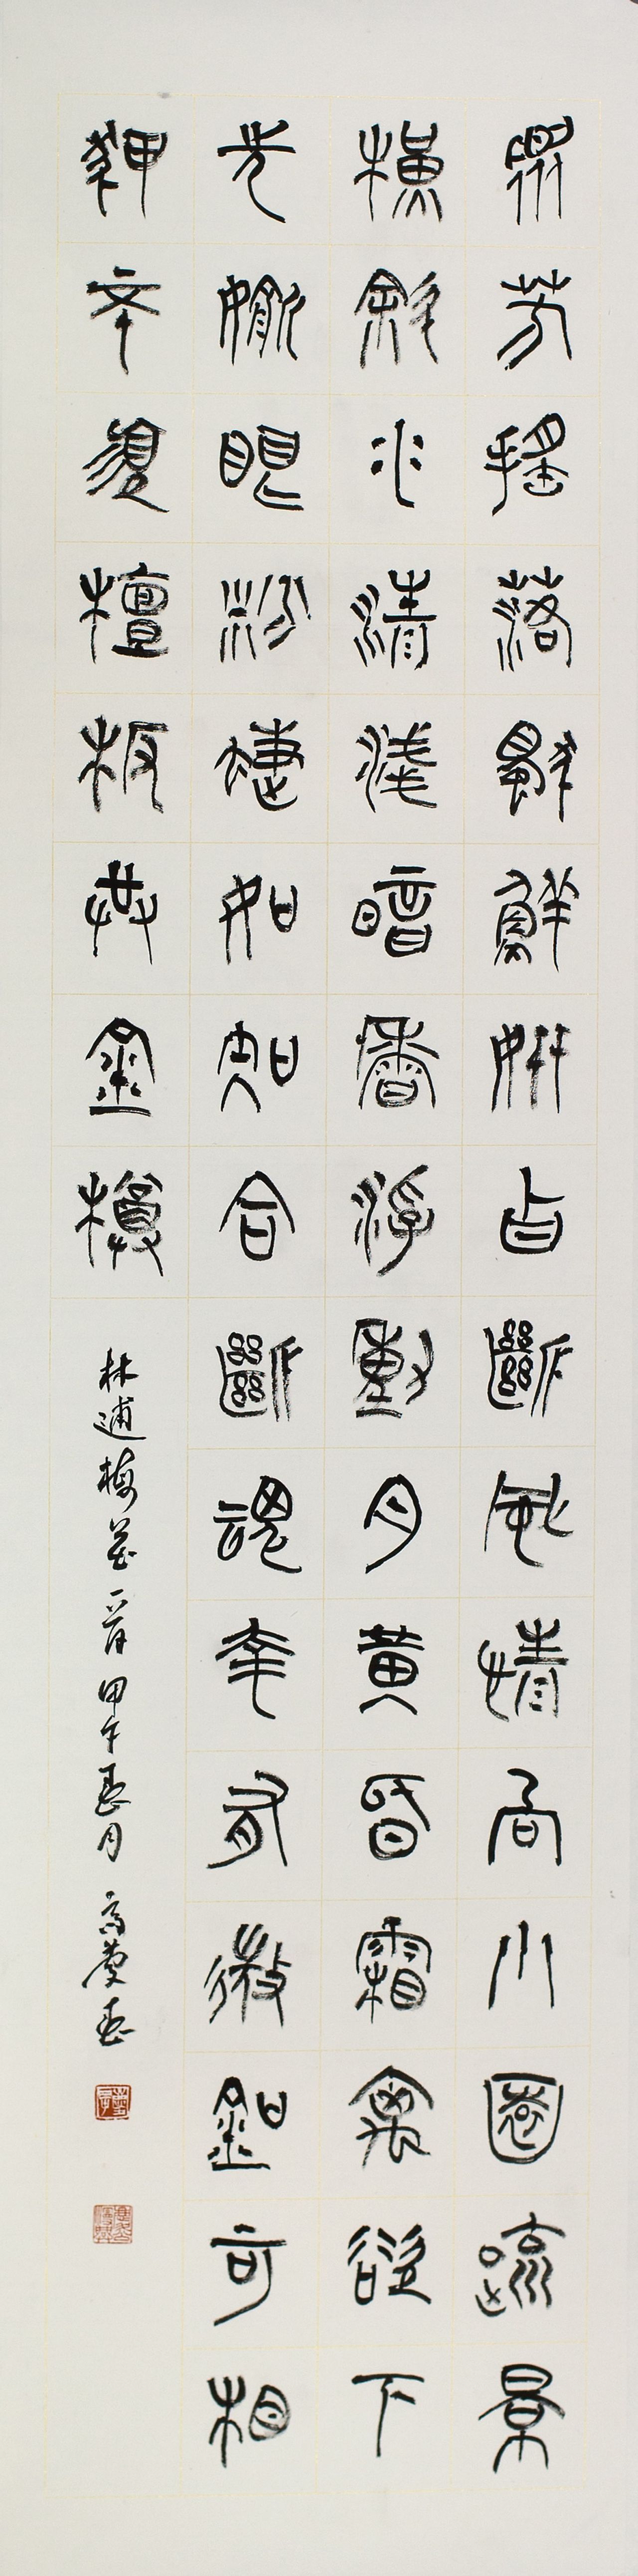 眾芳搖落獨鮮妍占斷風情向小園疏景
橫斜水清淺暗香浮動月黃昏霜禽欲下
先媮眼粉蝶如知合斷魂幸有微唫可相
狎不須檀板共金樽
林逋梅花一首 甲午春月 高慶春